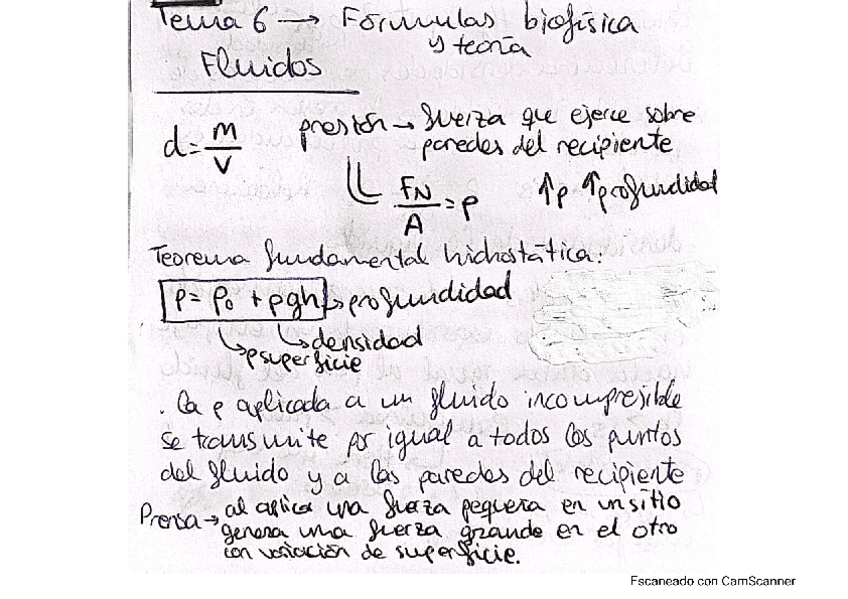 Tema 6 → Fórmulas biofísica
y teoría
Fluidos
d = m/V
presión → fuerza que ejerce sobre
paredes del recipiente
FN/A = p ↑p ↑profundidad
Teorema fundamental hidrostática:
p = p₀ + ρgh → profundidad
densidad
psuperficie
. la p aplicada a un fluido incompresible
se transmite por igual a todos los puntos
del fluido y a las paredes del recipiente
Prensa → al aplicar una fuerza pequeña en un sitio
genera una fuerza grande en el otro
con variación de superficie.
Escaneado con CamScanner